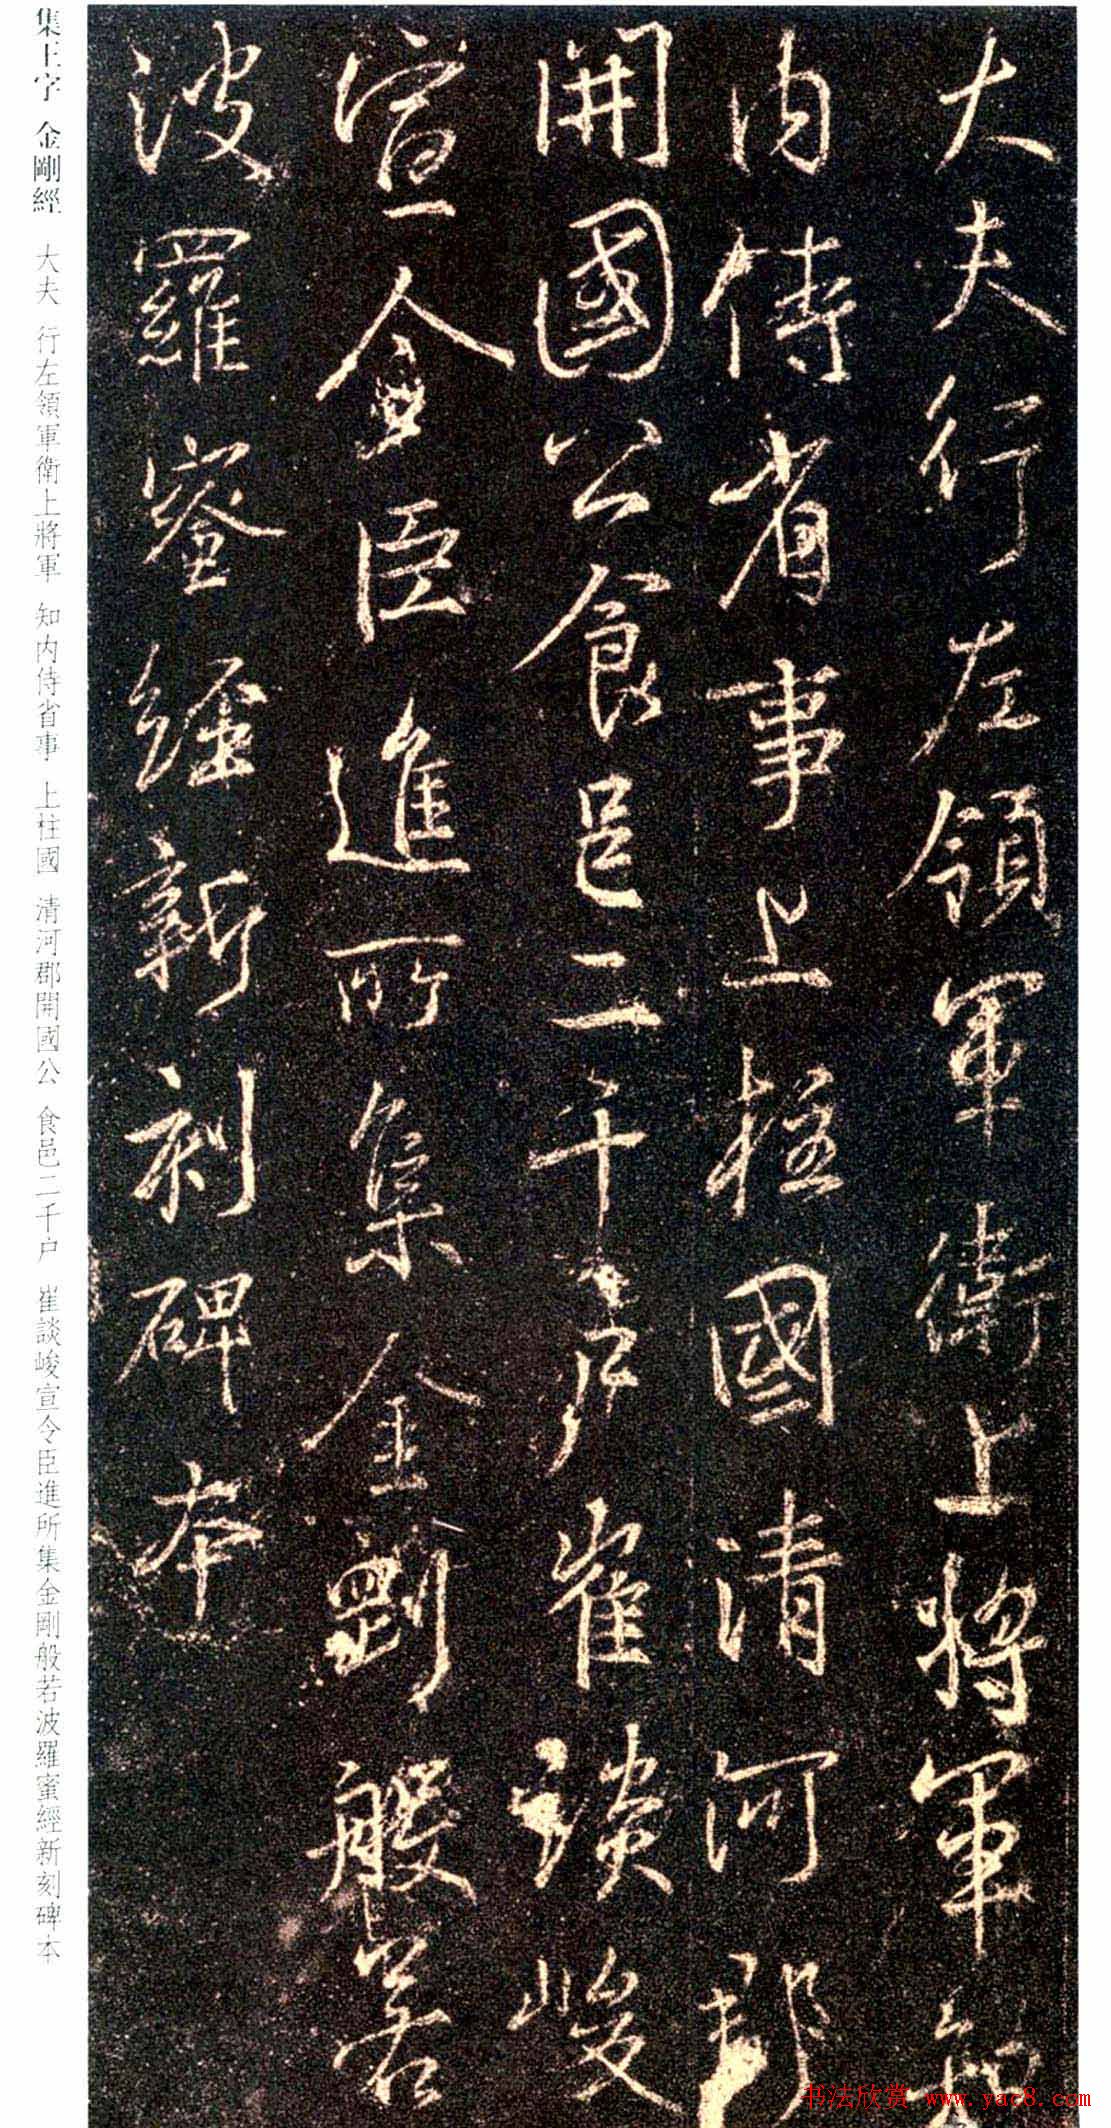 大夫行左領軍衛上將軍知
内侍省事上柱國清河郡
開國公食邑二千户崔談峻
宣令臣進所集金剛般若
波羅蜜經新刻碑本
集王字 金剛經 大夫 行左領軍衛上將軍 知内侍省事 上柱國 清河郡開國公 食邑二千户 崔談峻宣令臣進所集金剛般若波羅蜜經新刻碑本
书法欣赏 www.yac8.com